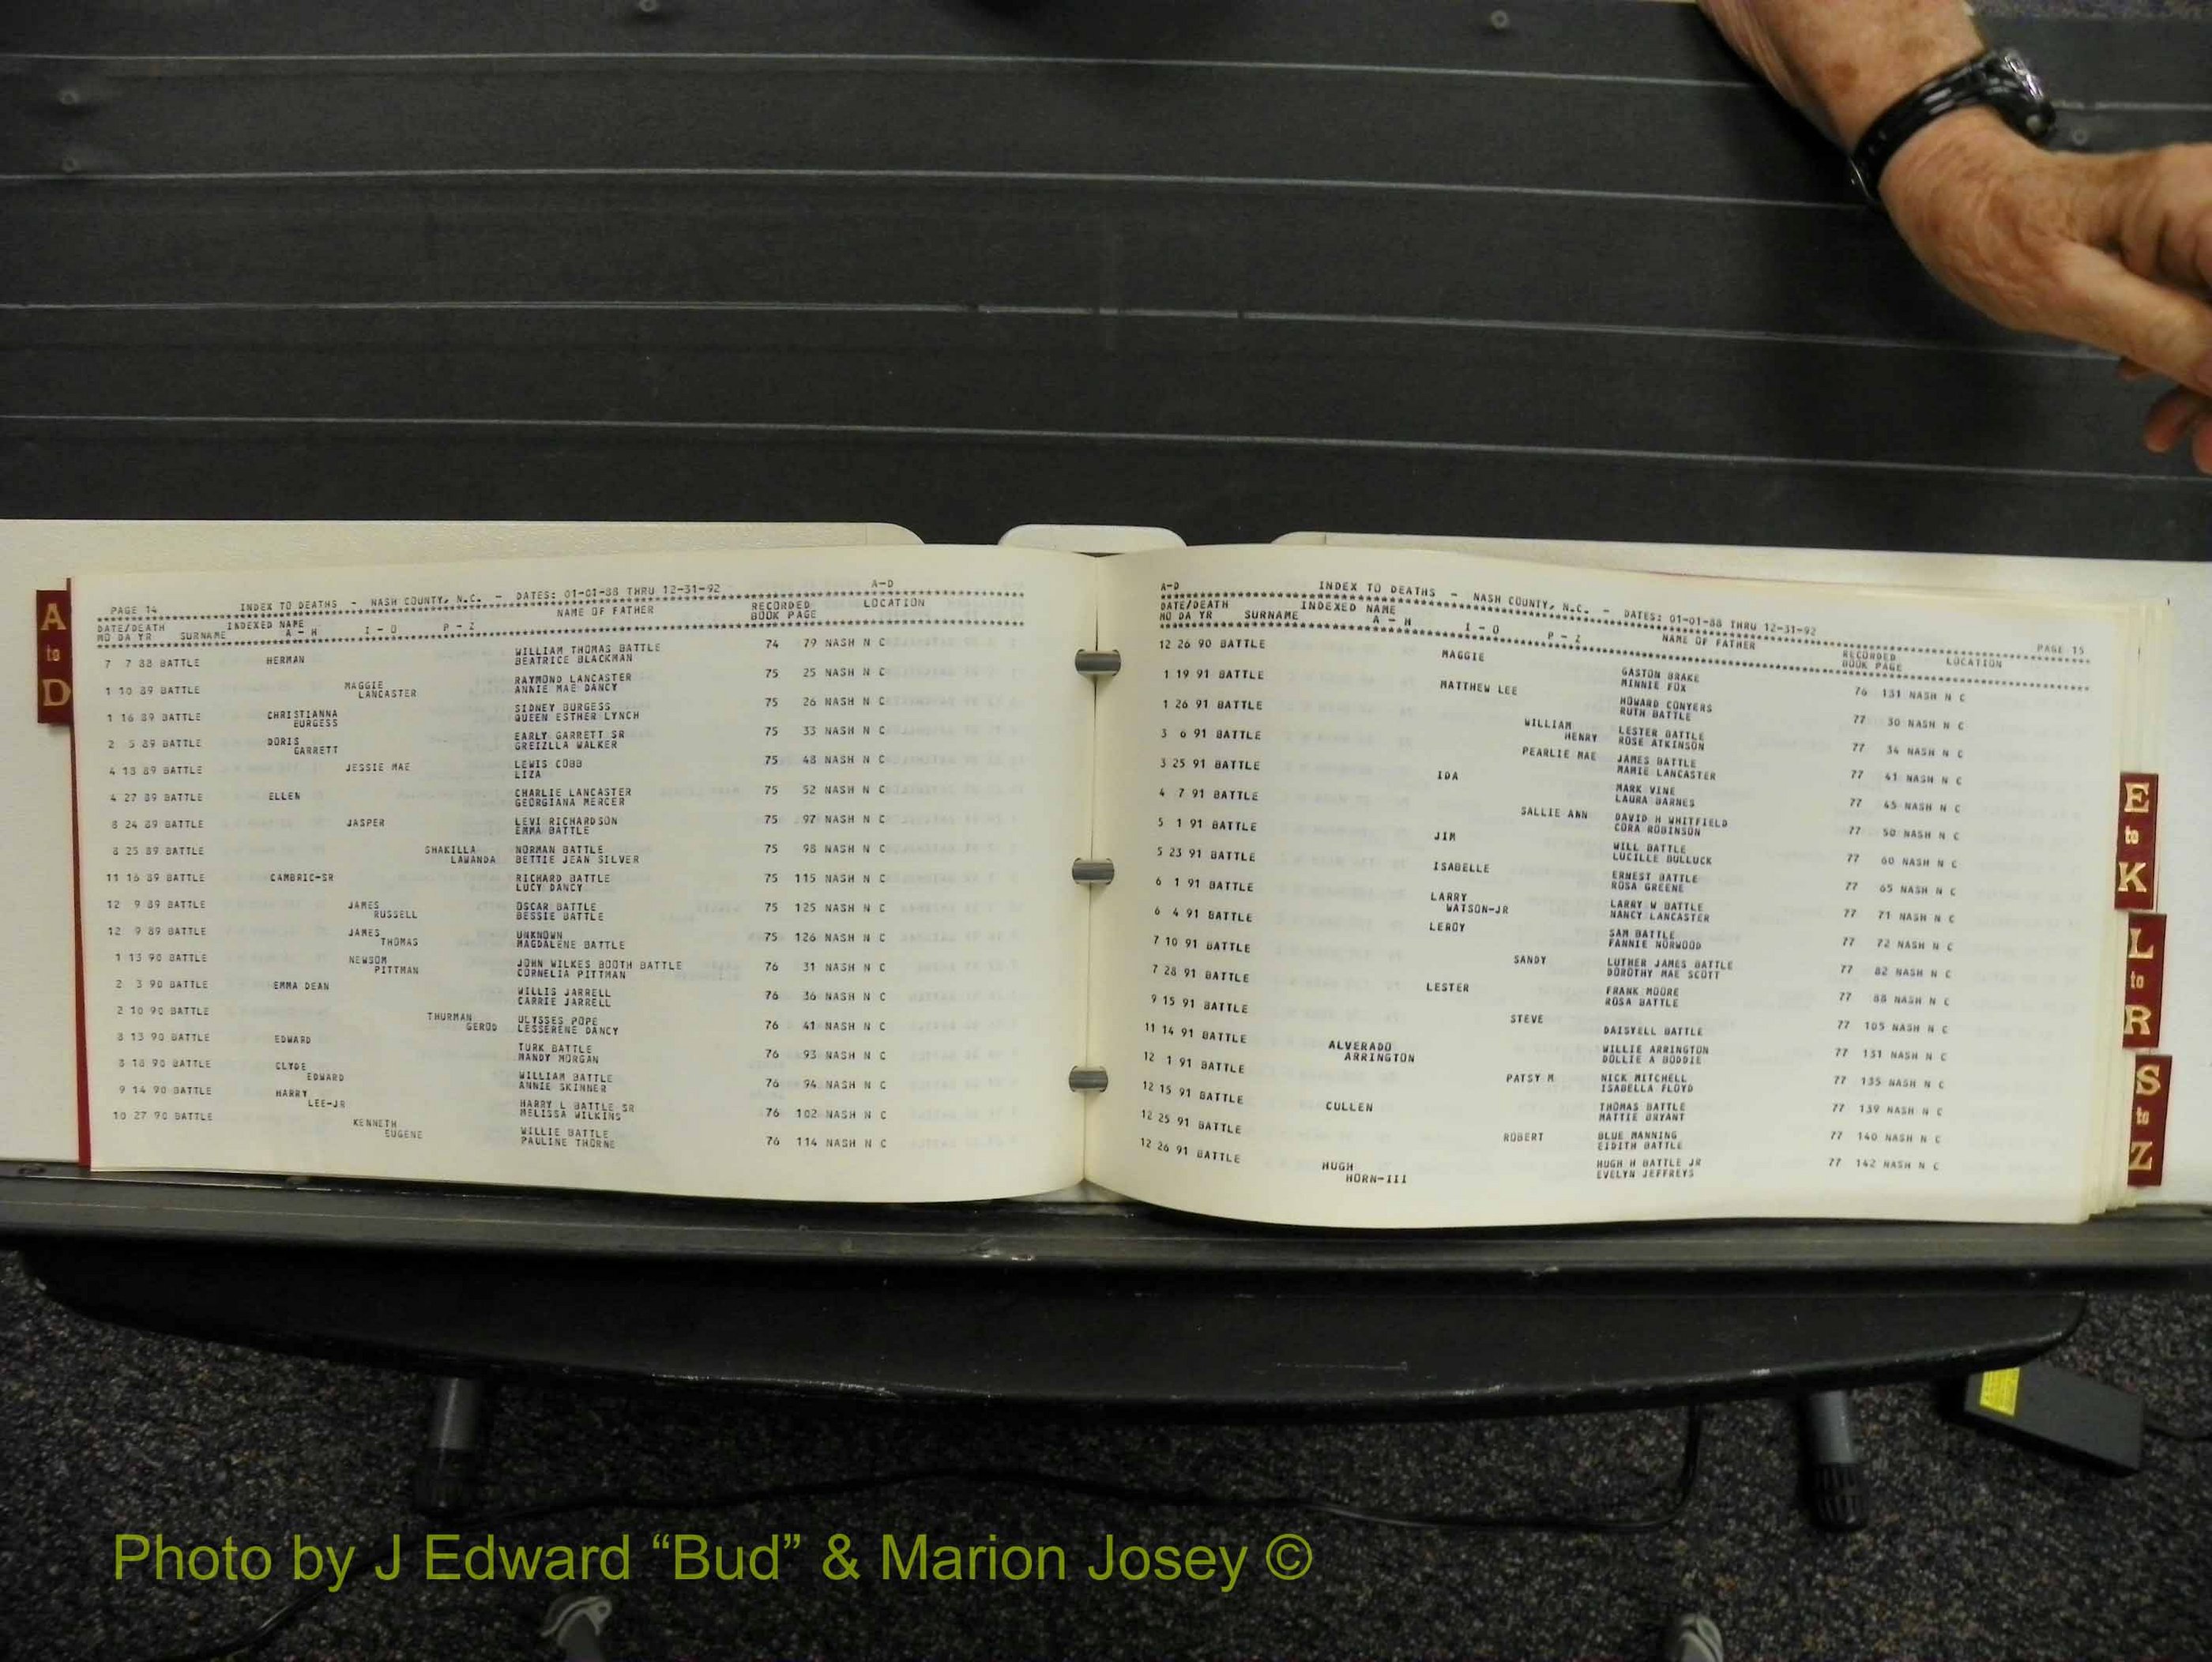 A
to
D
PAGE 14 INDEX TO DEATHS - NASH COUNTY, N.C. - DATES: 01-01-88 THRU 12-31-92 A-D
DATE/DEATH INDEXED NAME NAME OF FATHER RECORDED LOCATION
MO DA YR SURNAME A - H I - O P - Z BOOK PAGE
7 7 88 BATTLE HERMAN WILLIAM THOMAS BATTLE 74 79 NASH N C
BEATRICE BLACKMAN
1 10 89 BATTLE MAGGIE RAYMOND LANCASTER 75 25 NASH N C
LANCASTER ANNIE MAE DANCY
1 16 89 BATTLE CHRISTIANNA SIDNEY BURGESS 75 26 NASH N C
BURGESS QUEEN ESTHER LYNCH
2 5 89 BATTLE DORIS EARLY GARRETT SR 75 33 NASH N C
GARRETT GREIZLLA WALKER
4 13 89 BATTLE JESSIE MAE LEWIS COBB 75 48 NASH N C
LIZA
4 27 89 BATTLE ELLEN CHARLIE LANCASTER 75 52 NASH N C
GEORGIANA MERCER
8 24 89 BATTLE JASPER LEVI RICHARDSON 75 97 NASH N C
EMMA BATTLE
8 25 89 BATTLE SHAKILLA NORMAN BATTLE 75 98 NASH N C
LAWANDA BETTIE JEAN SILVER
11 16 89 BATTLE CAMBRIC-SR RICHARD BATTLE 75 115 NASH N C
LUCY DANCY
12 9 89 BATTLE JAMES OSCAR BATTLE 75 125 NASH N C
RUSSELL BESSIE BATTLE
12 9 89 BATTLE JAMES UNKNOWN 75 126 NASH N C
THOMAS MAGDALENE BATTLE
1 13 90 BATTLE NEWSOM JOHN WILKES BOOTH BATTLE 76 31 NASH N C
PITTMAN CORNELIA PITTMAN
2 3 90 BATTLE EMMA DEAN WILLIS JARRELL 76 36 NASH N C
CARRIE JARRELL
2 10 90 BATTLE THURMAN ULYSSES POPE 76 41 NASH N C
GEROD LESSERENE DANCY
8 13 90 BATTLE EDWARD TURK BATTLE 76 93 NASH N C
MANDY MORGAN
8 18 90 BATTLE CLYDE WILLIAM BATTLE 76 94 NASH N C
EDWARD ANNIE SKINNER
9 14 90 BATTLE HARRY HARRY L BATTLE SR 76 102 NASH N C
LEE-JR MELISSA WILKINS
10 27 90 BATTLE KENNETH WILLIE BATTLE 76 114 NASH N C
EUGENE PAULINE THORNE
A-D INDEX TO DEATHS - NASH COUNTY, N.C. - DATES: 01-01-88 THRU 12-31-92 PAGE 15
DATE/DEATH INDEXED NAME NAME OF FATHER RECORDED LOCATION
MO DA YR SURNAME A - H I - O P - Z BOOK PAGE
12 26 90 BATTLE MAGGIE GASTON BRAKE 76 131 NASH N C
MINNIE FOX
1 19 91 BATTLE MATTHEW LEE HOWARD CONYERS 77 30 NASH N C
RUTH BATTLE
1 26 91 BATTLE WILLIAM LESTER BATTLE 77 34 NASH N C
HENRY ROSE ATKINSON
3 6 91 BATTLE PEARLIE MAE JAMES BATTLE 77 41 NASH N C
MAMIE LANCASTER
3 25 91 BATTLE IDA MARK VINE 77 45 NASH N C
LAURA BARNES
4 7 91 BATTLE SALLIE ANN DAVID H WHITFIELD 77 50 NASH N C
CORA ROBINSON
5 1 91 BATTLE JIM WILL BATTLE 77 60 NASH N C
LUCILLE BULLUCK
5 23 91 BATTLE ISABELLE ERNEST BATTLE 77 65 NASH N C
ROSA GREENE
6 1 91 BATTLE LARRY LARRY W BATTLE 77 71 NASH N C
WATSON-JR NANCY LANCASTER
6 4 91 BATTLE LEROY SAM BATTLE 77 72 NASH N C
FANNIE NORWOOD
7 10 91 BATTLE SANDY LUTHER JAMES BATTLE 77 82 NASH N C
DOROTHY MAE SCOTT
7 28 91 BATTLE LESTER FRANK MOORE 77 88 NASH N C
ROSA BATTLE
9 15 91 BATTLE STEVE 77 105 NASH N C
DAISYELL BATTLE
11 14 91 BATTLE ALVERADO WILLIE ARRINGTON 77 131 NASH N C
ARRINGTON DOLLIE A BODDIE
12 1 91 BATTLE PATSY M NICK MITCHELL 77 135 NASH N C
ISABELLA FLOYD
12 15 91 BATTLE CULLEN THOMAS BATTLE 77 139 NASH N C
MATTIE BRYANT
12 25 91 BATTLE ROBERT BLUE MANNING 77 140 NASH N C
EIDITH BATTLE
12 26 91 BATTLE HUGH HUGH H BATTLE JR 77 142 NASH N C
HORN-III EVELYN JEFFREYS
E
to
K
L
to
R
S
to
Z
Photo by J Edward “Bud” & Marion Josey ©